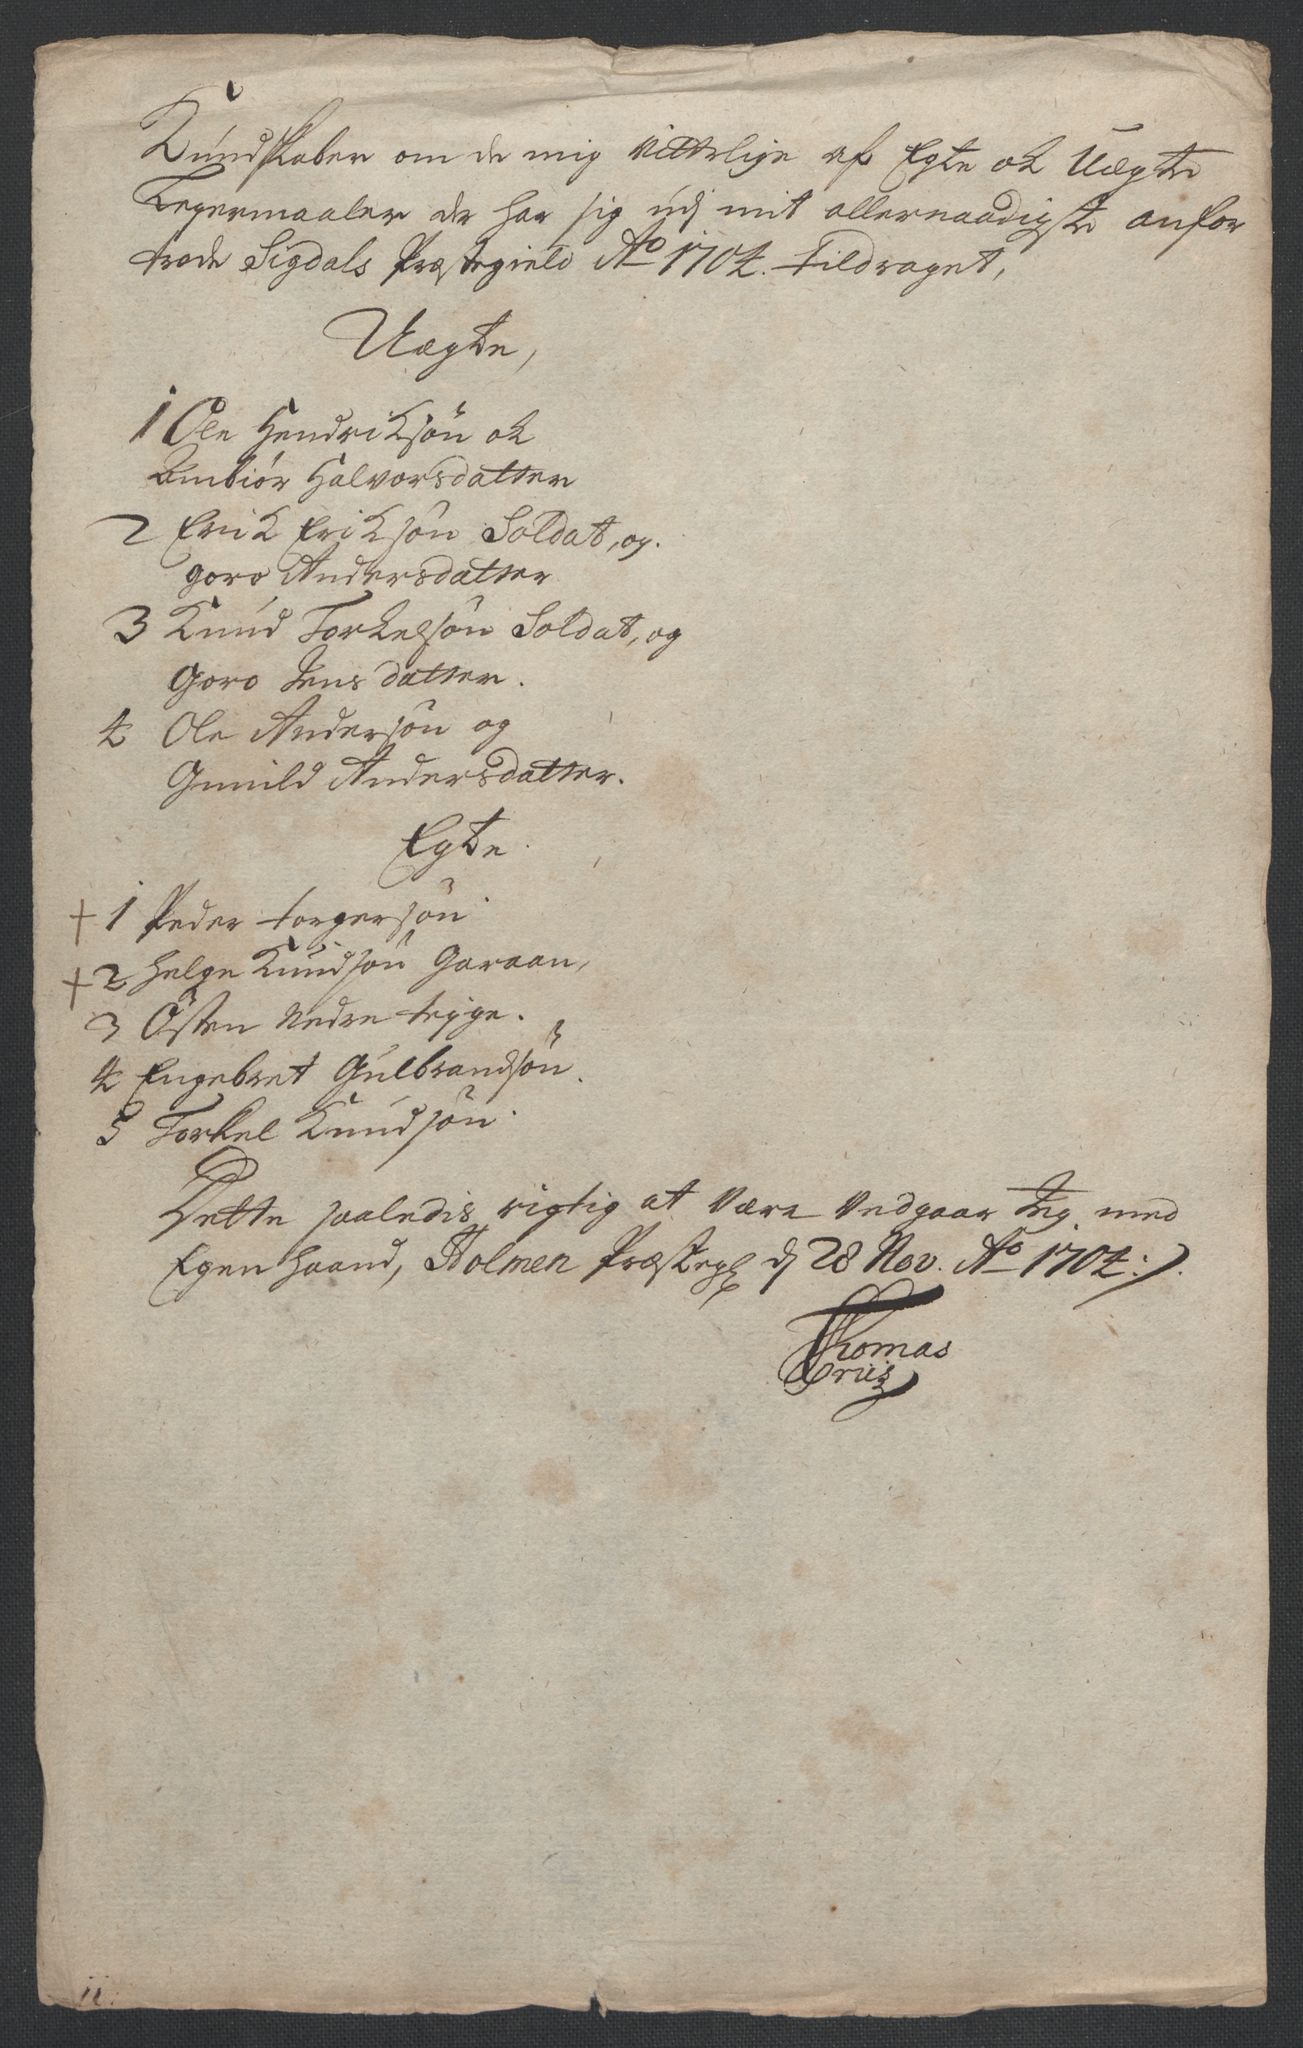 Kundskaber om de mig vitterlige af Egte ok Uægte
Legermaaler der har sig udj mit allernaadigste anfor
trode Sigdals Præstegield Ao 1704. tildraget,
Uægte,
1 Ole Hendriksøn ok
Embiør Halvorsdatter
2 Erik Eriksøn Soldat, og
goro Andersdatter
3 Knud Torkelsøn Soldat, og
Goro Jensdatter.
4 Ole Andersøn og
Gunild Andersdatter.
Egte.
+ 1 Peder torgersøn
+ 2 Helge Knudsøn Garaan,
3 Østen Nedre
4 Engebret Gulbrandsøn.
5 Torkel Knudsøn.
Dette saaledis rigtig at være vedgaar Jeg med
Egen haand, Holmen Præstegl d 28 Nov. Ao 1704.
Thomas
11.